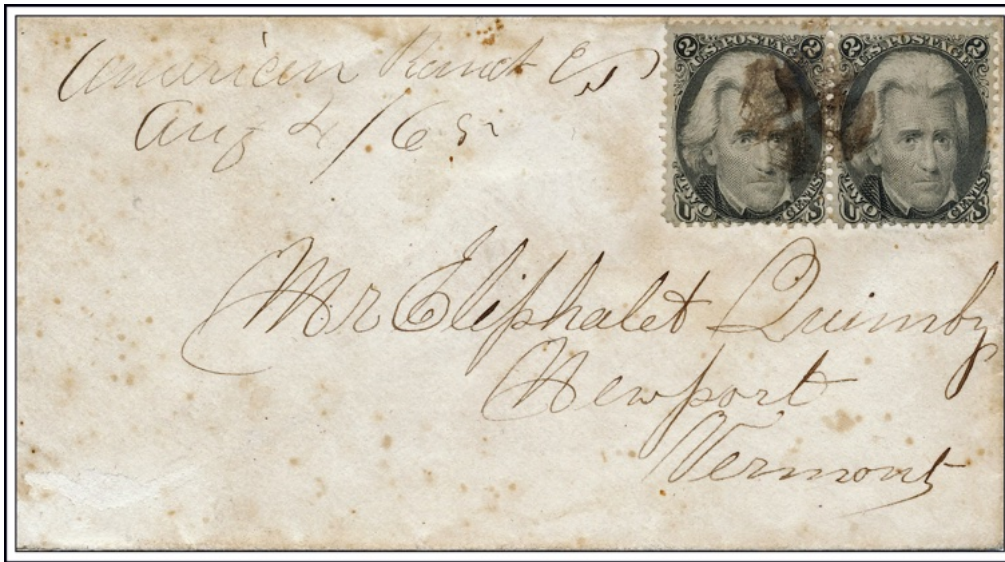 American Ranch C.T.
Aug 4/65
2 U.S. POSTAGE 2
TWO CENTS
U S
2 U.S. POSTAGE 2
TWO CENTS
U S
Mr Eliphalet Quimby
Newport
Vermont